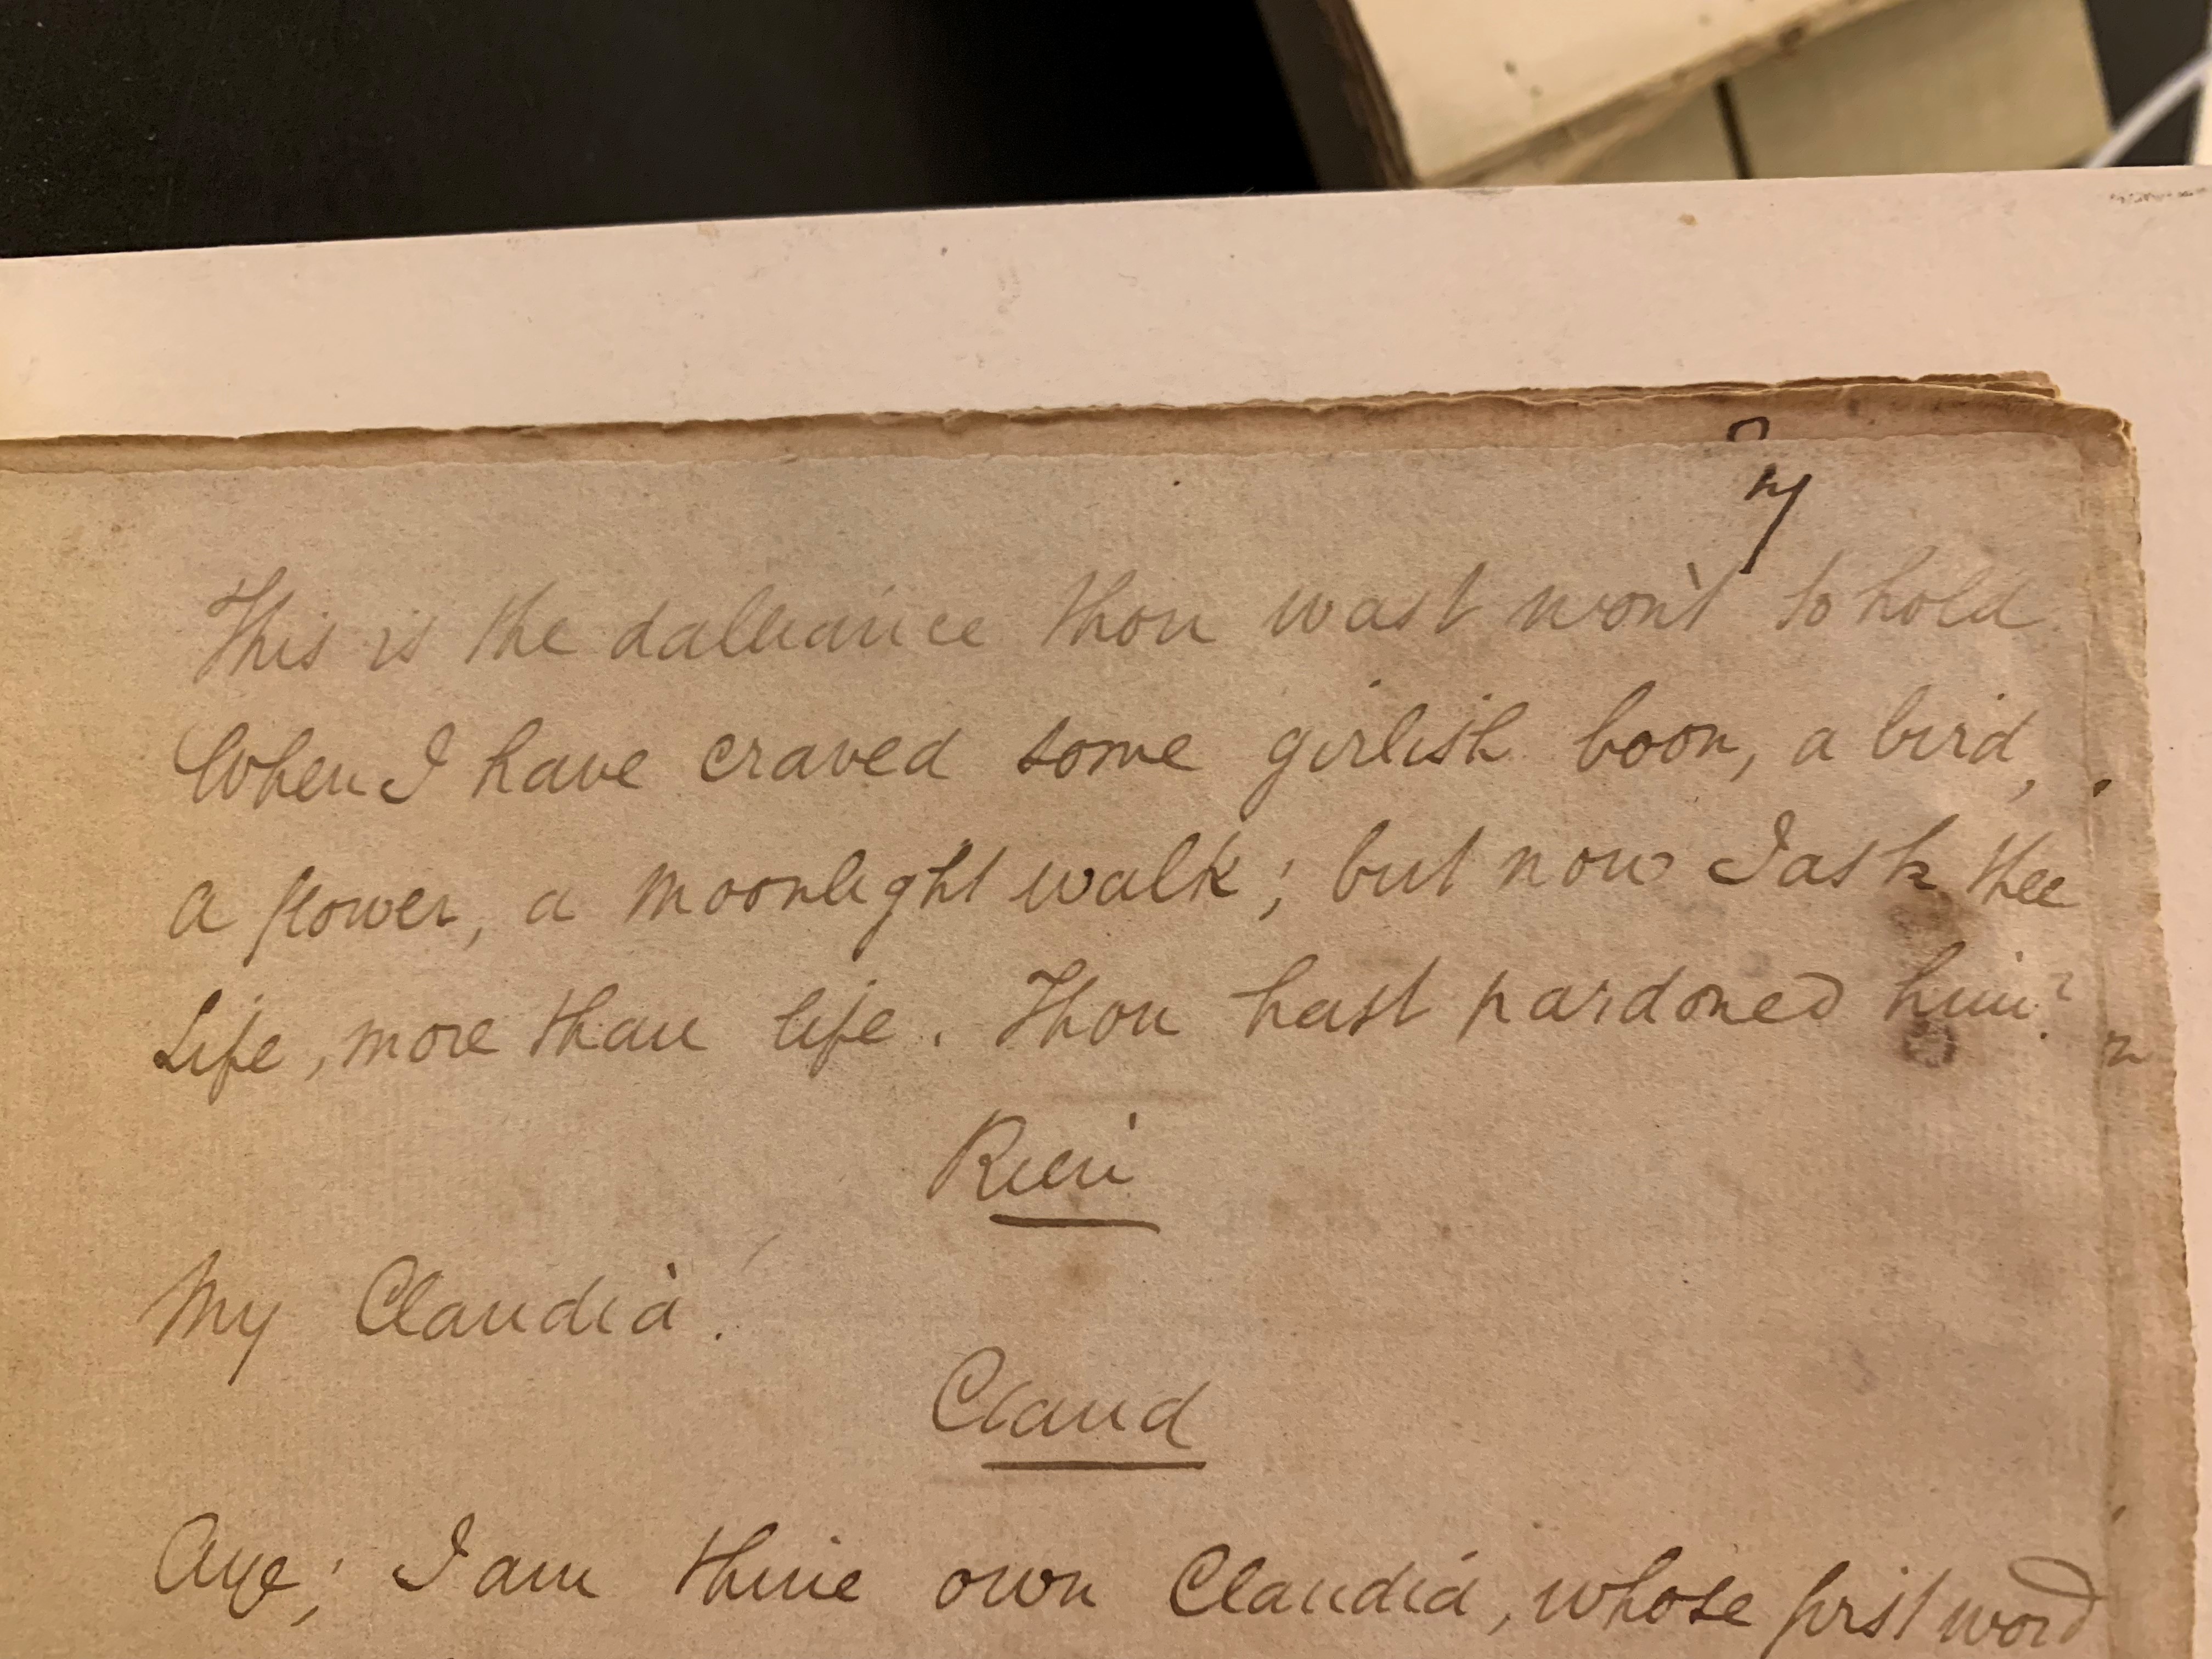 7
This is the dalliance thou wast wont to hold
When I have craved some girlish boon, a bird,
A flower, a moonlight walk; but now I ask thee
Life, more than life. Thou hast pardoned him?
Rieri
My Claudia!
Claud
Aye; I am thine own Claudia, whose first word